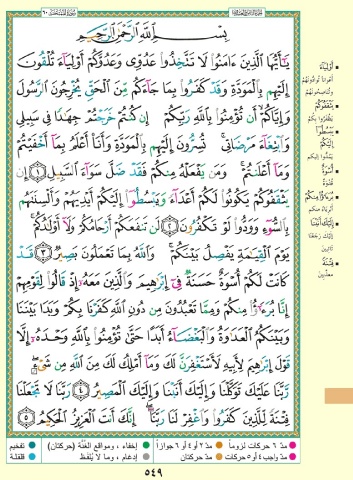 سورة الممتحنة ٦٠
بِسْمِ ٱللَّهِ ٱلرَّحْمَٰنِ ٱلرَّحِيمِ
يَٰٓأَيُّهَا ٱلَّذِينَ ءَامَنُوا۟ لَا تَتَّخِذُوا۟ عَدُوِّى وَعَدُوَّكُمْ أَوْلِيَآءَ تُلْقُونَ
إِلَيْهِم بِٱلْمَوَدَّةِ وَقَدْ كَفَرُوا۟ بِمَا جَآءَكُم مِّنَ ٱلْحَقِّ يُخْرِجُونَ ٱلرَّسُولَ
وَإِيَّاكُمْ ۙ أَن تُؤْمِنُوا۟ بِٱللَّهِ رَبِّكُمْ إِن كُنتُمْ خَرَجْتُمْ جِهَٰدًا فِى سَبِيلِى
وَٱبْتِغَآءَ مَرْضَاتِى ۚ تُسِرُّونَ إِلَيْهِم بِٱلْمَوَدَّةِ وَأَنَا۠ أَعْلَمُ بِمَآ أَخْفَيْتُمْ
وَمَآ أَعْلَنتُمْ ۚ وَمَن يَفْعَلْهُ مِنكُمْ فَقَدْ ضَلَّ سَوَآءَ ٱلسَّبِيلِ ١ إِن
يَثْقَفُوكُمْ يَكُونُوا۟ لَكُمْ أَعْدَآءً وَيَبْسُطُوٓا۟ إِلَيْكُمْ أَيْدِيَهُمْ وَأَلْسِنَتَهُم
بِٱلسُّوٓءِ وَوَدُّوا۟ لَوْ تَكْفُرُونَ ٢ لَن تَنفَعَكُمْ أَرْحَامُكُمْ وَلَآ أَوْلَٰدُكُمْ ۚ
يَوْمَ ٱلْقِيَٰمَةِ يَفْصِلُ بَيْنَكُمْ ۚ وَٱللَّهُ بِمَا تَعْمَلُونَ بَصِيرٌ ٣ قَدْ
كَانَتْ لَكُمْ أُسْوَةٌ حَسَنَةٌ فِىٓ إِبْرَٰهِيمَ وَٱلَّذِينَ مَعَهُۥٓ إِذْ قَالُوا۟ لِقَوْمِهِمْ
إِنَّا بُرَءَٰٓؤُا۟ مِنكُمْ وَمِمَّا تَعْبُدُونَ مِن دُونِ ٱللَّهِ كَفَرْنَا بِكُمْ وَبَدَا بَيْنَنَا
وَبَيْنَكُمُ ٱلْعَدَٰوَةُ وَٱلْبَغْضَآءُ أَبَدًا حَتَّىٰ تُؤْمِنُوا۟ بِٱللَّهِ وَحْدَهُۥٓ إِلَّا
قَوْلَ إِبْرَٰهِيمَ لِأَبِيهِ لَأَسْتَغْفِرَنَّ لَكَ وَمَآ أَمْلِكُ لَكَ مِنَ ٱللَّهِ مِن شَىْءٍ ۖ
رَّبَّنَا عَلَيْكَ تَوَكَّلْنَا وَإِلَيْكَ أَنَبْنَا وَإِلَيْكَ ٱلْمَصِيرُ ٤ رَبَّنَا لَا تَجْعَلْنَا
فِتْنَةً لِّلَّذِينَ كَفَرُوا۟ وَٱغْفِرْ لَنَا رَبَّنَآ ۖ إِنَّكَ أَنتَ ٱلْعَزِيزُ ٱلْحَكِيمُ ٥
أَوْلِيَآءَ
يَثْقَفُوكُمْ
يَبْسُطُوٓا۟
إِلَيْكُمْ
أُسْوَةٌ
قدوة
إِلَيْكَ أَنَبْنَا
فِتْنَةً
مدّ ٦ حركات لزوماً مدّ ٢ أو ٤ أو ٦ جوازاً إخفاء، ومواقع الغنّة (حركتان) تفخيم
مدّ واجب ٤ أو ٥ حركات مدّ حركتان إدغام، وما لا يُلفَظ قلقلة
٥٤٩